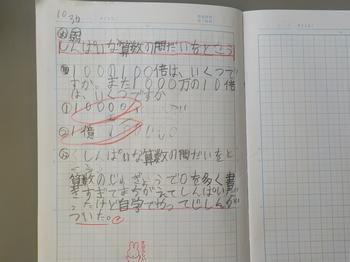 10.30
しんぱいな算数の問だいをとこう
1000の100倍は、いくつで
すか。また1000万の10倍
は、いくつですか
① 10000
② 1億
しんぱいな算数の問だいをと
算数のじゅぎょうで0を多く書
きすぎてまちがえてしんぱいだ
ったけど自学でやってじしんが
ついた。